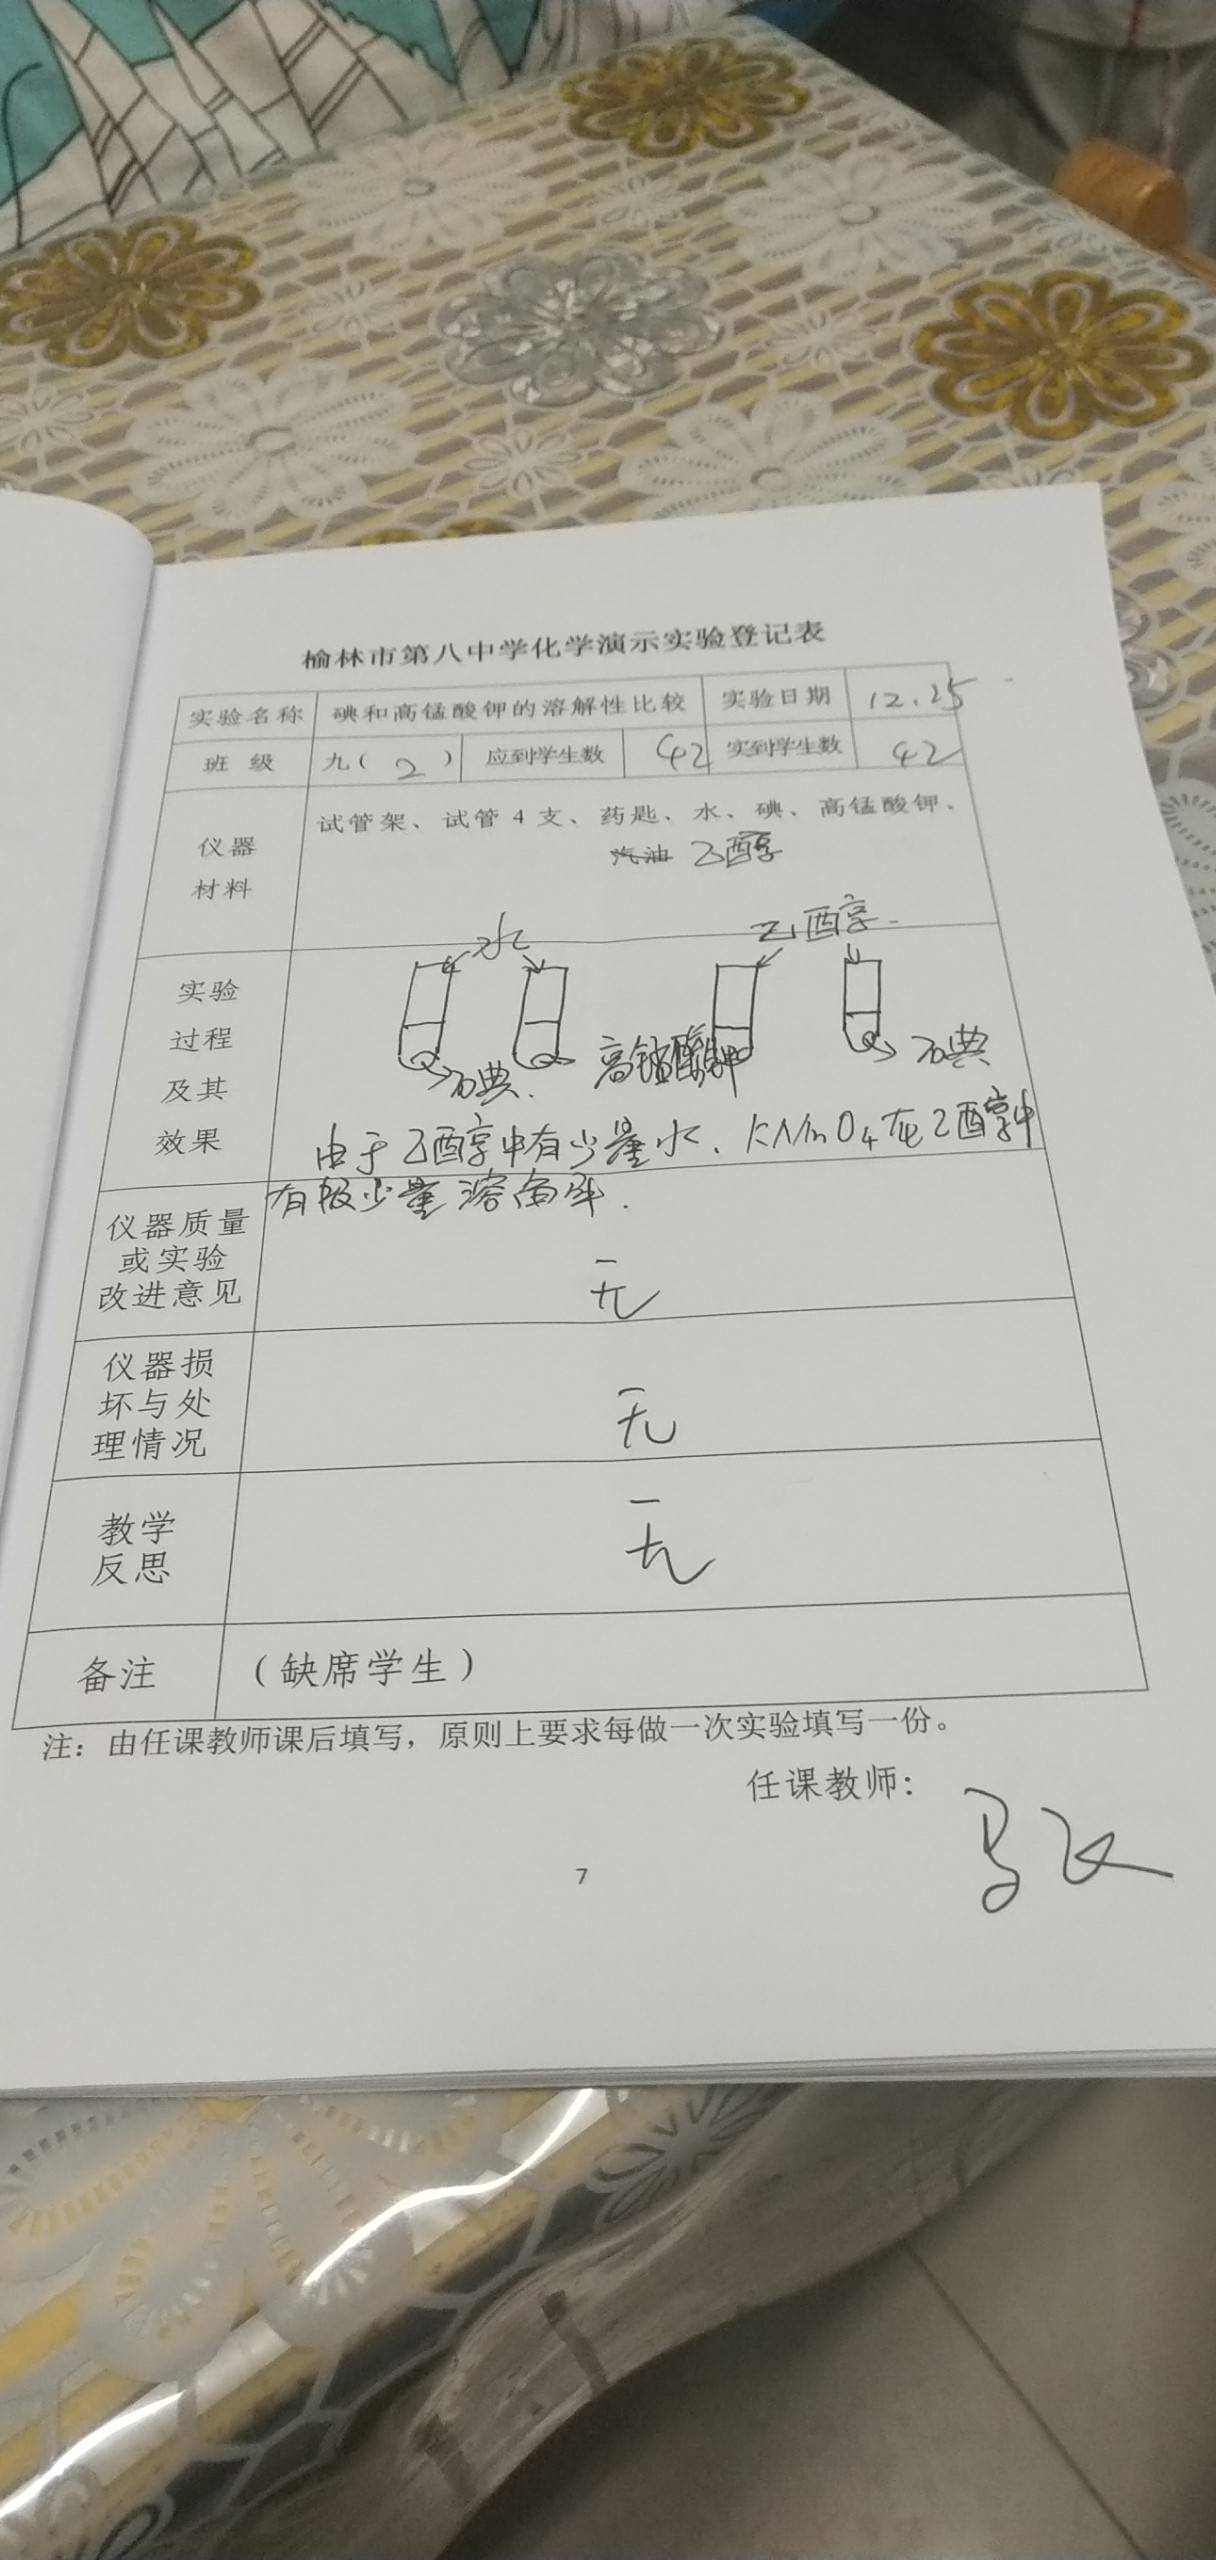 榆林市第八中学化学演示实验登记表
实验名称 碘和高锰酸钾的溶解性比较 实验日期 12.25
班 级 九( 2 ) 应到学生数 42 实到学生数 42
仪器
材料
试管架、试管 4 支、药匙、水、碘、高锰酸钾、
汽油 乙醇
实验
过程
及其
效果
水 乙醇
碘. 高锰酸钾 碘
由于乙醇中有少量水、KMnO4在乙醇中
有极少量溶解.
仪器质量
或实验
改进意见
无
仪器损
坏与处
理情况
无
教学
反思
无
备注 (缺席学生)
注：由任课教师课后填写，原则上要求每做一次实验填写一份。
任课教师：
7